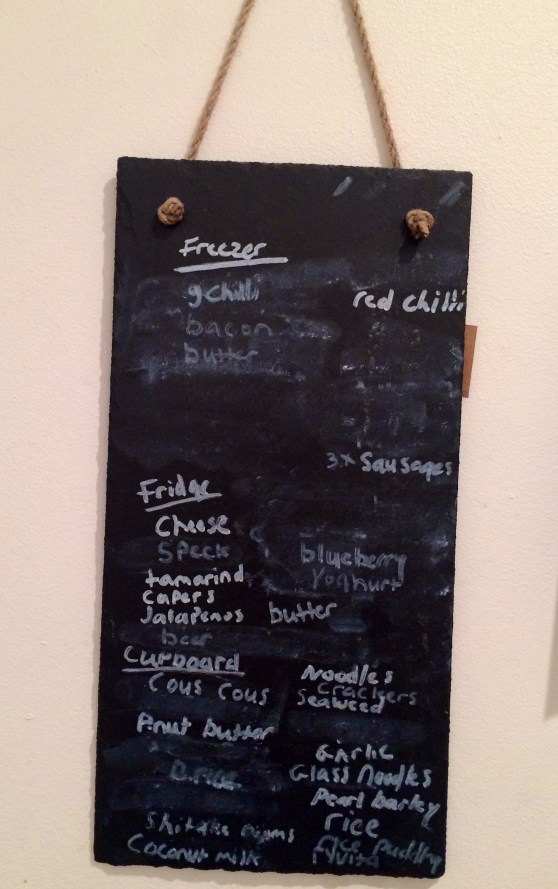 Freezer
gchilli
red chilli
bacon
butter
3x Sausages
Fridge
Cheese
Speck
blueberry
Yoghurt
tamarind
capers
Jalapenos
butter
beer
Cupboard
Noodles
Cous Cous
Crackers
Seaweed
P.nut butter
Garlic
Glass Noodles
B.rice
Pearl barley
Shitake
rice
Coconut milk
rice pudding
ryvita